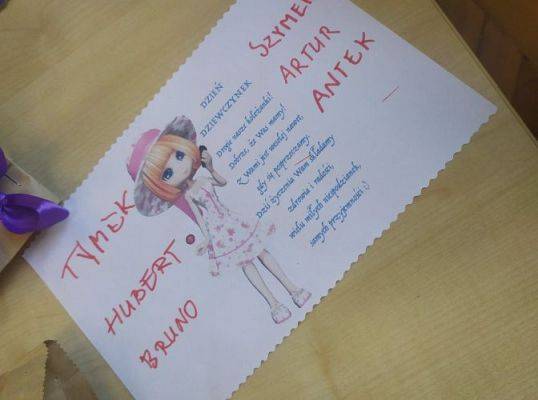 SZYMEK
ARTUR
ANTEK
DZIEŃ
DZIEWCZYNEK
Drogie nasze koleżanki!
Dobrze, że Was mamy!
Z Wami jest weselej nawet
gdy się posprzeczamy.
Dziś życzenia Wam składamy
zdrowia i radości,
wielu miłych niespodzianek,
samych przyjemności :)
TYMEK
HUBERT
BRUNO